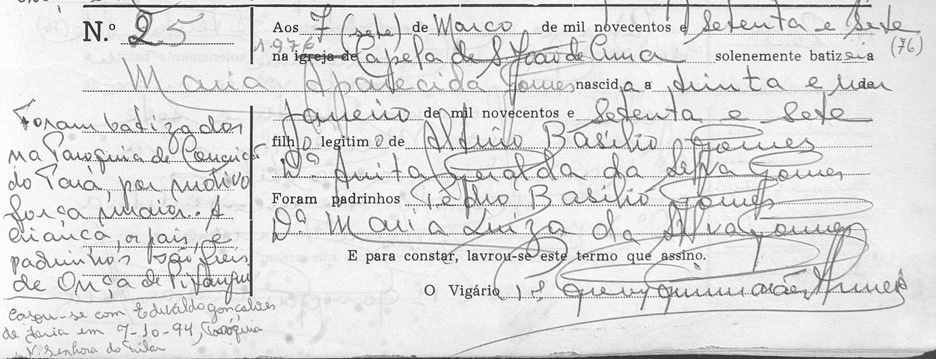 N.º 25
Aos 7 (sete) de Março de mil novecentos e setenta e sete
1976 (76)
na igreja de Capela de S. João de Cima solenemente batizei a
Maria Aparecida Gomes nascida a trinta e um de
Janeiro de mil novecentos e setenta e sete
filho legitimo de Altino Basílio Gomes
Dª. Anita Geralda da Silva Gomes
Foram padrinhos Pedro Basílio Gomes
Dª Maria Luiza da Silva Gomes
E para constar, lavrou-se este termo que assino.
O Vigário Pe. Guimarães
Foram batizados
na Paroquia de Conceição
do Pará, por motivo
força maior. A
criança, os pais, e
padrinhos são fieis
de Onça de Pitangui
Casou-se com Edivaldo gonçalves
de faria em 7-10-94, Paróquia
N. Senhora do Pilar